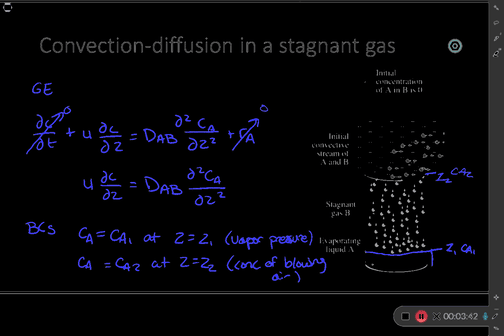 Convection-diffusion in a stagnant gas
GE
∂c/∂t → 0 + u ∂c/∂z = D_AB ∂²C_A/∂z² + r_A → 0
u ∂c/∂z = D_AB ∂²C_A/∂z²
BCs C_A = C_A1 at z = z_1 (vapor pressure)
C_A = C_A2 at z = z_2 (conc of blowing
air)
Initial
concentration
of A in B is 0
Initial
convective
stream of
A and B
z_2 C_A2
Stagnant
gas B
Evaporating
liquid A
z_1 C_A1
00:03:42